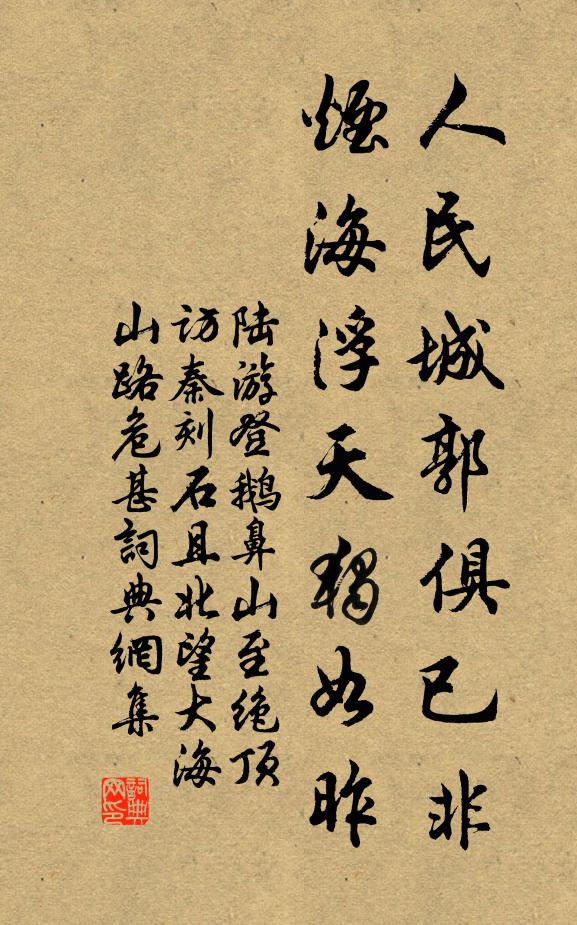 人民城郭俱已非
煙海浮天獨如昨
陆游登鵝鼻山至绝顶
访秦刻石且北望大海
山路危甚詞典網集
詞典
网印